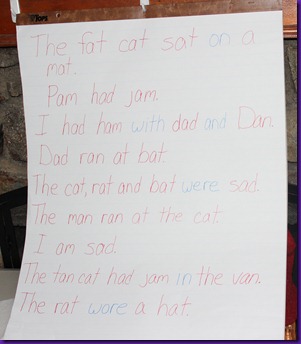 TOPS
The fat cat sat on a
mat.
Pam had jam.
I had ham with dad and Dan.
Dad ran at bat.
The cat, rat and bat were sad.
The man ran at the cat.
I am sad.
The tan cat had jam in the van.
The rat wore a hat.